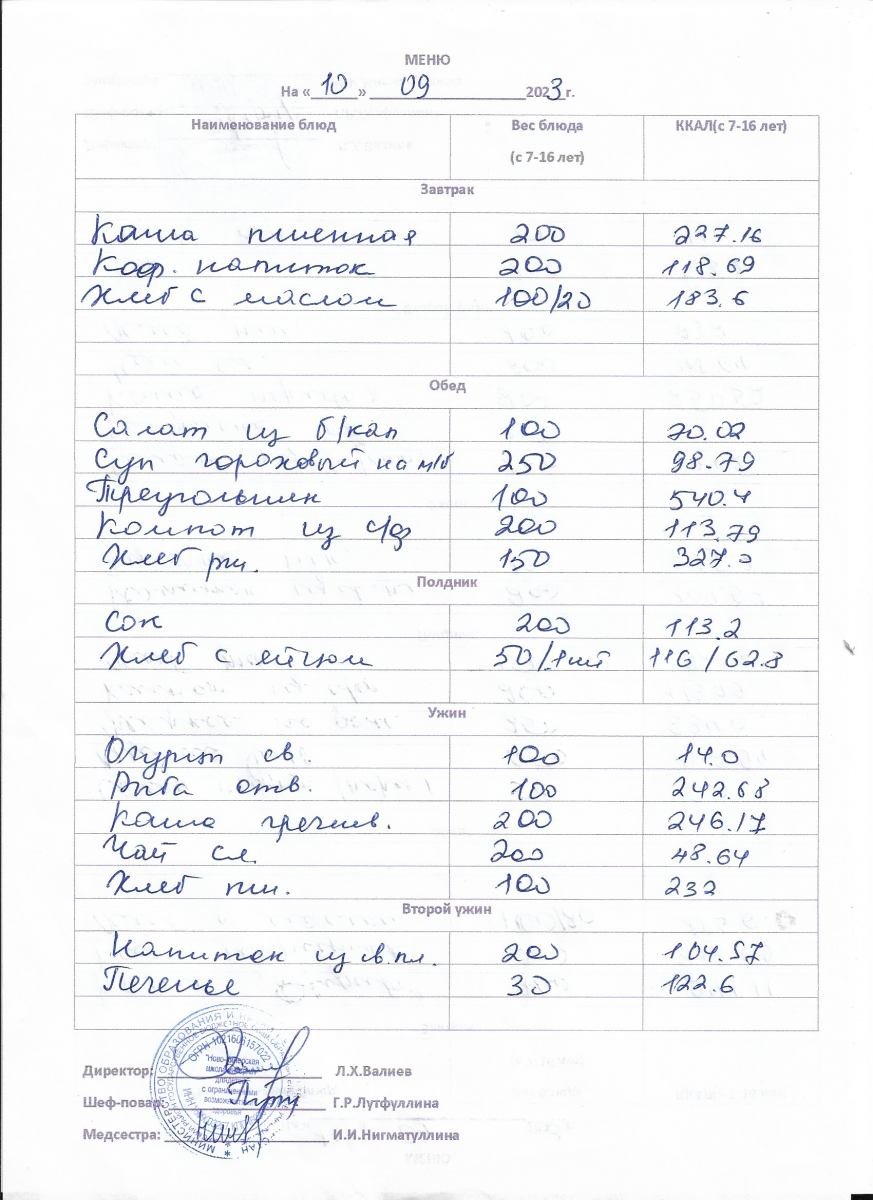 МЕНЮ
На «10» 09 2023г.
Наименование блюд Вес блюда (с 7-16 лет) ККАЛ(с 7-16 лет)
Завтрак
Каша пшенная 200 227.16
Коф. напиток 200 118.69
Хлеб с маслом 100/20 183.6
Обед
Салат из б/кап 100 70.02
Суп гороховый на м/б 250 98.79
Треугольник 100 540.4
Компот из с/ф 200 113.79
Хлеб рж. 150 327.0
Полдник
Сок 200 113.2
Хлеб с яйцом 50/1шт 116/62.8
Ужин
Огурцы св. 100 14.0
Рыба отв. 100 242.68
Каша гречнев. 200 246.17
Чай сл. 200 48.64
Хлеб пш. 100 232
Второй ужин
Напиток из св.пл. 200 104.57
Печенье 30 122.6
Директор: Л.Х.Валиев
Шеф-повар: Г.Р.Лутфуллина
Медсестра: И.И.Нигматуллина
МИНИСТЕРСТВО ОБРАЗОВАНИЯ И
ОГРН 1021606157022